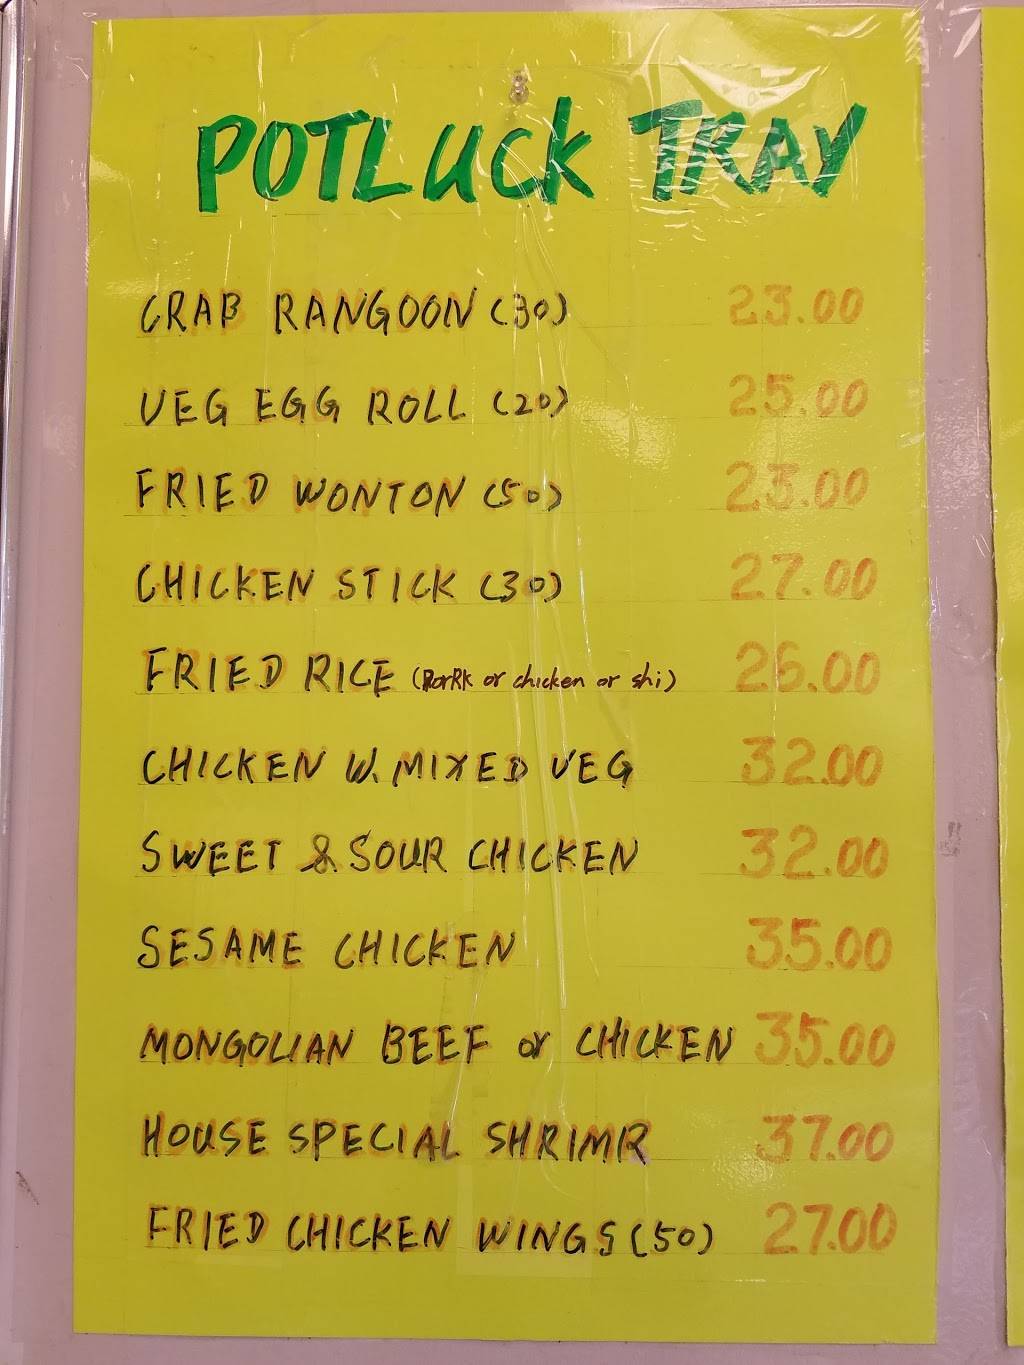 POTLUCK TRAY
CRAB RANGOON (30) 23.00
VEG EGG ROLL (20) 25.00
FRIED WONTON (50) 23.00
CHICKEN STICK (30) 27.00
FRIED RICE (PorRK or chicken or shi) 26.00
CHICKEN W. MIXED VEG 32.00
SWEET & SOUR CHICKEN 32.00
SESAME CHICKEN 35.00
MONGOLIAN BEEF or CHICKEN 35.00
HOUSE SPECIAL SHRIMP 37.00
FRIED CHICKEN WINGS (50) 27.00